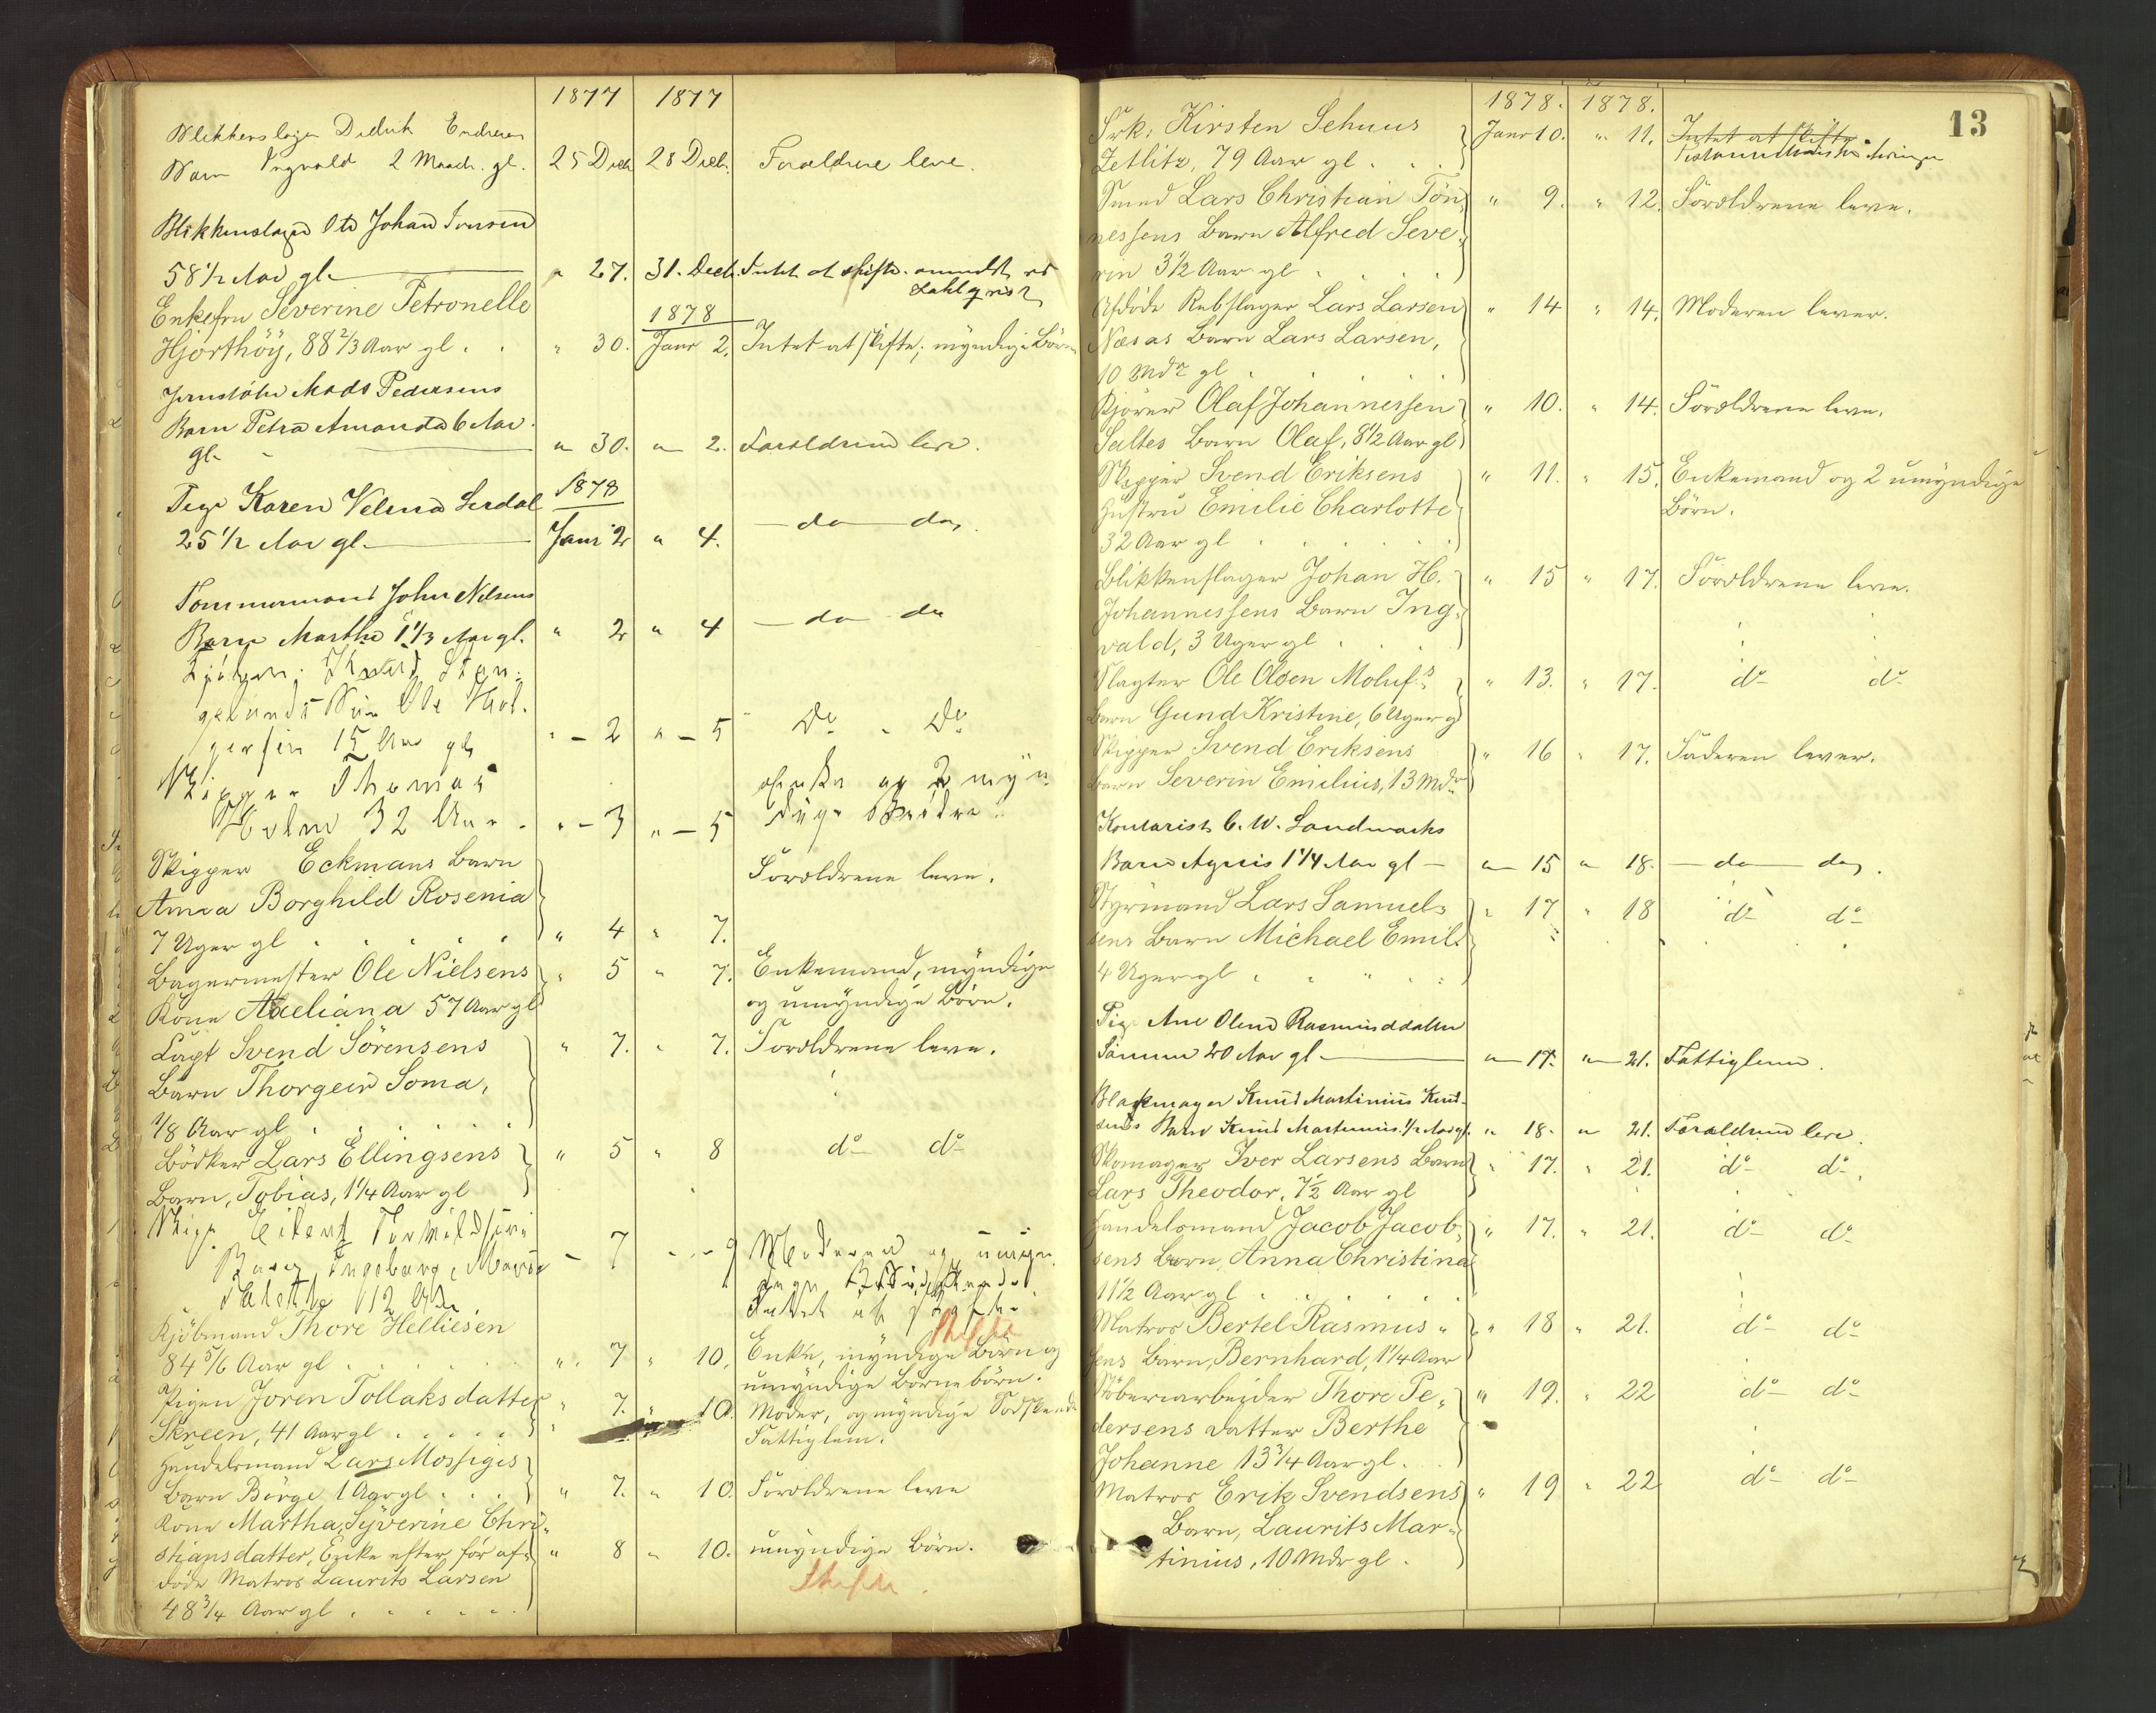 1877 1877
Blikkenslager Didrik Endresen
Barn Ingvald 2 Maade. gl. 25 Decb 28 Decb. Forældrene leve.
Blikkenslager Ole Johan Iversen
58 1/2 Aar gl. " 27. 31. Decb. Intet at skifte. anmeldt ved
Enkefru Severine Petronelle 1878
Hjorthöÿ, 88 2/3 Aar gl. " 30. Janr 2. Intet at skifte; myndige Börn
Jernstöber Mads Pedersens
Barn Petra Amanda 6 Aar
gl. " 30. " 2. Forældrene leve.
Pige Karen Velena Serdal 1878
25 1/2 Aar gl. Janr 2 " 4. – do – do.
Tømmermand John Nilsens
Barn Marthe 1 1/3 Aar gl. " 2 " 4 – do – do
gelands Sön Ole Hol-
gersen 15 Aar gl " – 2 " – 5 Do. " Do.
Skipper Thomas Enke og 2 myn
Holm 32 Aar. " – 3 " – 5 dige
Skipper Eckmans Barn Forældrene leve.
Anna Borghild Rosenia
7 Uger gl " 4 " 7.
Bagermester Ole Nielsens " 5 " 7. Enkemand, myndige
Kone Axeliana 57 Aar gl og umyndige Börn.
Lagt Svend Sörensens " 7. " 7. Forældrene leve.
Barn Thorgeir Soma,
1/8 Aar gl
Bödker Lars Ellingsens " 5 " 8 do do
Barn, Tobias, 1 1/4 Aar gl
Skip. Eilert Torkildsen – 7 " – 9 Moderen og umyn
Barn Ingeborg Marie
Talette 12 Aar. Intet at skifte
Kjöbmand Thore Helliesen Skifte
84 5/6 Aar gl " 7 " 10. Enke, myndige Börn og
umyndige Börnebörn.
Pigen Joren Tollaksdatter " 7. " 10. Moder, og myndige Södskende
Skreen, 41 Aar gl Fattiglem.
Handelsmand Lars Mossiges
Barn Börge 1 Aar gl " 7. " 10. Forældrene leve
Kone Martha Syverine Chri-
stiansdatter, Enke efter för af- " 8 " 10. umyndige Börn.
döde Matros Laurits Larsen Skifte.
48 3/4 Aar gl
13
1878. 1878.
Frk. Kirsten Schuus Janr 10. " 11. Intet at skifte
Zetlitz, 79 Aar gl.
Smed Lars Christian Tön- " 9. " 12. Forældrene leve.
nessens Barn Alfred Seve-
rin 3 1/2 Aar gl
Afdöde Rebslager Lars Larsen " 14 " 14. Moderen lever.
Næsas Barn Lars Larsen,
10 Mdr gl
Kjörer Olaf Johannessen " 10. " 14. Forældrene leve.
Saltes Barn Olaf, 8 1/2 Aar gl
Skipper Svend Eriksens " 11. " 15. Enkemand og 2 umyndige
Hustru Emilie Charlotte Börn.
32 Aar gl
Blikkenslager Johan H. " 15 " 17. Forældrene leve.
Johannessens Barn Ing-
vald, 3 Uger gl
Slagter Ole Olsen Molufs " 13. " 17. do do
Barn Gund Kristine, 6 Uger gl
Skipper Svend Eriksens " 16 " 17. Faderen lever.
Barn Severin Emilius, 13 Mdr
Kontorist C. W. Landmarks
Barn Agnes 1 1/4 Aar gl – " 15 " 18. – do – do.
Styrmand Lars Samuel- " 17 " 18 do do
sens Barn Michael Emil
4 Uger gl
Pige Ane Olene Rasmusdatter
Sömme 20 Aar gl. " 17. " 21. Fattiglem.
Blokmager Knud Martinius Knud-
sens Barn Knud Martinius 1/2 Aar gl. " 18. " 21. Forældrene leve.
Skomager Iver Larsens Barn " 17. " 21. do do.
Lars Theodor, 7 1/2 Aar gl
Handelsmand Jacob Jacob- " 17. " 21. do do
sens Barn, Anna Christina
11 1/2 Aar gl
Matros Bertel Rasmus- " 18 " 21. do do
sens Barn, Bernhard, 1 1/4 Aar
Stöberiarbeider Thore Pe- " 19. " 22 do do
dersens datter Berthe
Johanne 13 3/4 Aar gl.
Matros Erik Svendsens " 19 " 22 do do
Barn, Laurits Mar-
tinius, 10 Mdr gl.